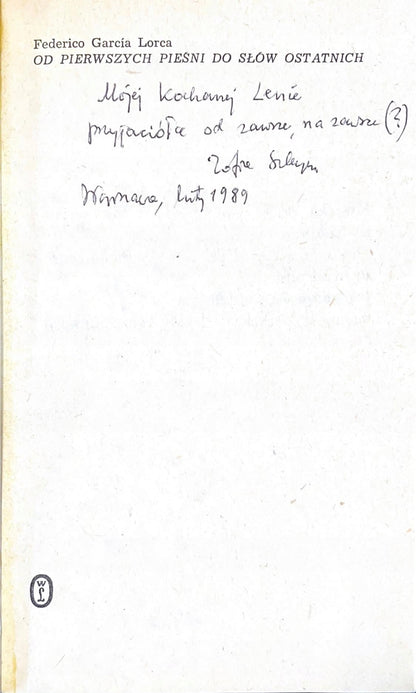 Federico García Lorca
OD PIERWSZYCH PIEŚNI DO SŁÓW OSTATNICH
Mojej Kochanej Lenie
przyjaciółce od zawsze, na zawsze (?)
Zofia Szleyen
Warszawa, luty 1989
W
L